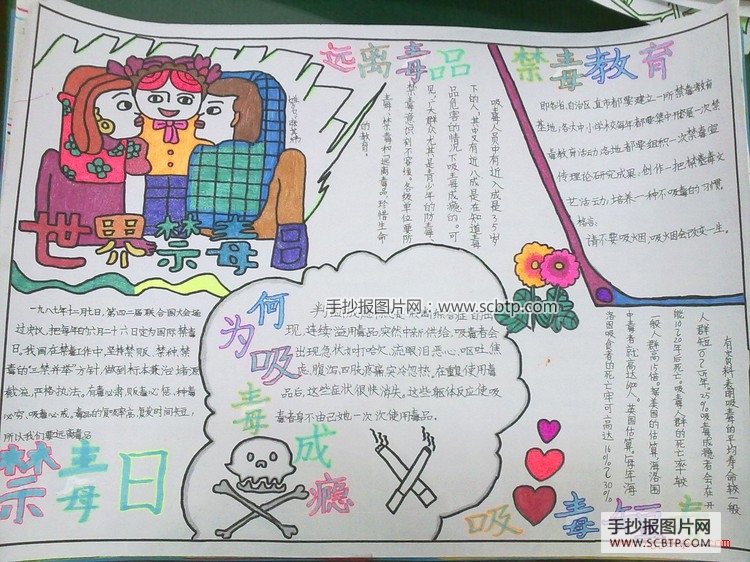 远离毒品
禁毒教育
世界禁毒日
吸毒人员中有近八成是35岁
下的人,其中又有近八成是在知道毒
品危害的情况下吸毒成瘾的。可
见,广大群众尤其是青少年的防毒、
禁毒意识刻不容缓。各级单位要防
毒、禁毒和“远离毒品,珍惜生命
的教育。
即各省、自治区、直辖市都要建立一所禁毒教育
基地;各大中小学校每年都要集中开展一次禁
毒教育活动;各地都要组织一次禁毒宣
传理论研究成果;创作一批禁毒文
艺活动;培养一种不吸毒的习惯
格言:
请不要吸火烟,吸火烟会改变一生。
一九八七年十二月七日,第四二届联合国大会通
过决议,把每年的六月二十六日定为国际禁毒
日。我国在禁毒工作中,坚持禁贩、禁种、禁
毒的“三禁并举”方针,做到标本兼治,堵源
截流,严格执法。有毒必肃,贩毒必惩,种毒
必究,吸毒必戒。毒品的复吸率高,复发时间长短,
所以我们要远离毒品
禁毒日
为何吸毒成瘾
手抄报图片网:www.scbtp.com
现,连续滥用毒品突然中断供给,吸毒者会
出现急状,如哈欠、流眼泪、恶心、呕吐、焦
虑、腹泻、四肢疼痛、忽冷忽热。在重复使用毒
品后,这些症状很快消失。这些躯体反应使吸
毒者身不由己地一次次使用毒品。
有资料表明,吸毒的平均寿命较一般
人群短10～15年。25%吸毒成瘾者会在开
能10～20年后死亡。吸毒人群的死亡率较
一般人群高15倍。每美国的估算,海洛因
中毒者就高达14%。英国估算,每年海
洛因吸食者的死亡率可高达16%～30%
吸毒
手抄报图片网
WWW.SCBTP.COM